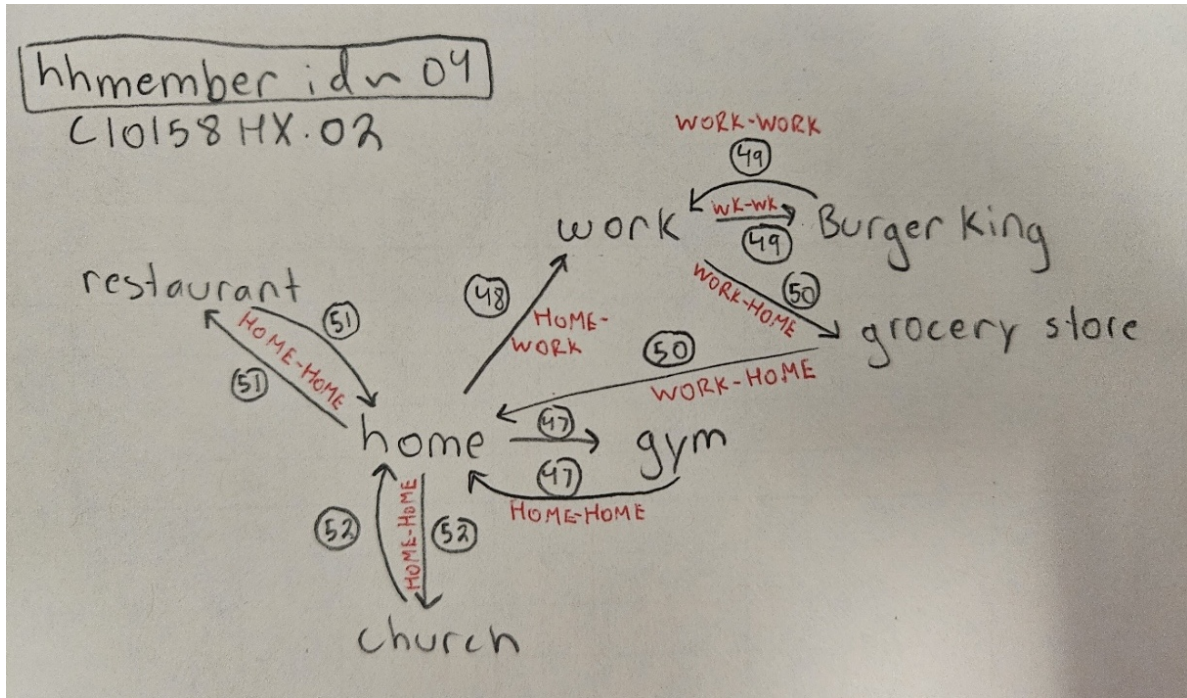 hhmember idn 04
C10158HX.02
WORK-WORK
49
work
WK-WK
49
Burger King
restaurant
51
HOME-HOME
51
48
HOME-
WORK
WORK-HOME
50
grocery store
50
WORK-HOME
home
47
gym
47
HOME-HOME
52
HOME-HOME
52
church